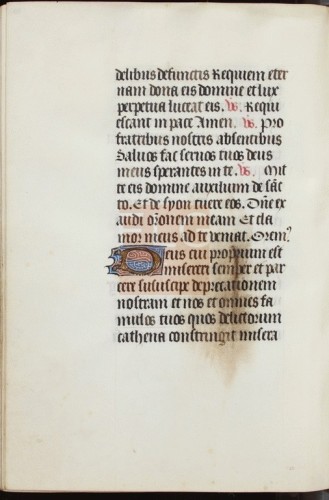 delibus defunctis Requiem eter
nam dona eis domine et lux
perpetua luceat eis. vs. Requi
escant in pace Amen. vs. Pro
fratribus nostris absentibus
Saluos fac seruos tuos deus
meus sperantes in te. vs. Mit
te eis domine auxilium de sãc
to. Et de syon tuere eos. Dñe ex
audi orõnem meam. Et cla
mor meus ad te veniat. Orem9
Deus cui proprium est
misereri semper et par
cere suscipe deprecationem
nostram et nos et omnes fa
mulos tuos quos delictorum
cathena constringit misera